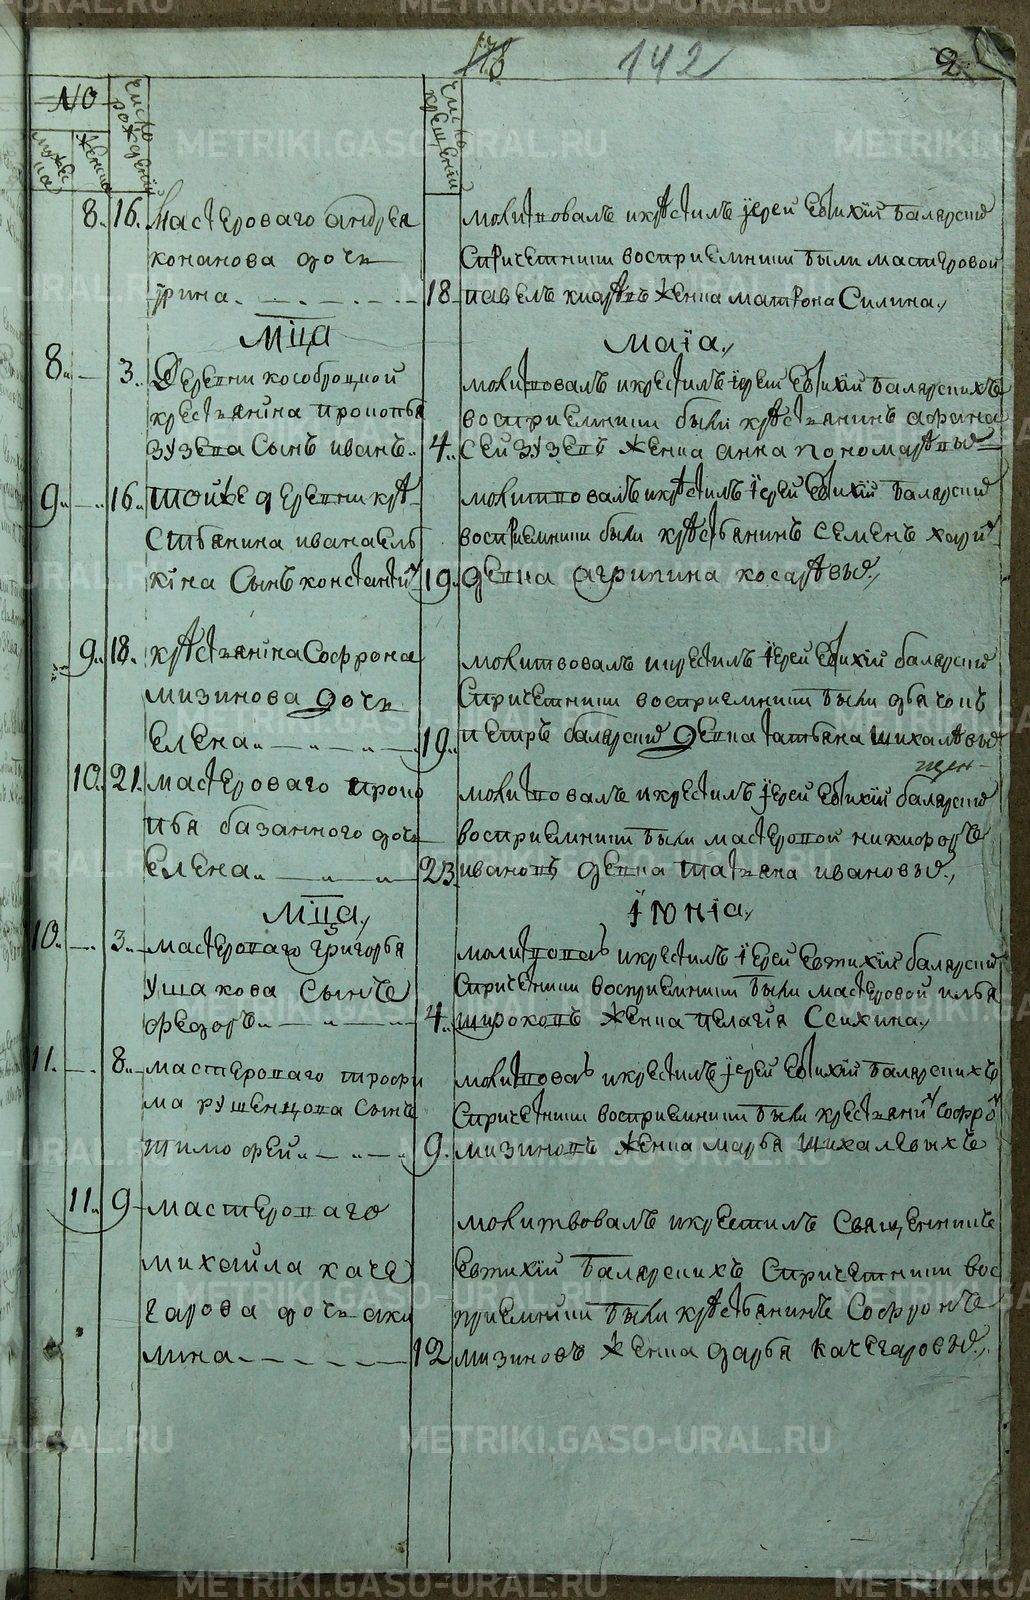 178 142 2
№
мужеска
женска
число рождения
число крещения
8. 16. Мастероваго андрея
конанова дочь
їрина
молитвовалъ икрестилъ їерей Евтихїй балярскихъ
Спричетники восприемники были мастеровой
18 павелъ женка матрона Силина.
Мца Маїа.
8. 3. Деревни кособродцкой
крестьянїна прокопья
зузева Сынъ иванъ.
молитвовалъ икрестилъ їерей Евтихїй балярскихъ
восприемники были крестьянинъ афана
4. Сей зузевъ женка анна пономаревыхъ
9. 16. тойже деревни кре
стьянина ивана ель
кїна Сынъ константинъ
молитвовалъ икрестилъ їерей Евтихїй балярскихъ
восприемники были крестьянинъ Семенъ
19. девка агрипина косаревыхъ.
9. 18. крестьянїна Софрона
мизинова дочь
Елена
молитвовалъ икрестилъ їерей Евтихїй балярскихъ
Спричетники восприемники были дьячокъ
19. петръ балярскихъ девка татьяна шихалевыхъ
10. 21. мастероваго проко
пья базанного дочь
Елена
молитвовалъ икрестилъ їерей Евтихїй балярскихъ
восприемники были мастеровой никифоръ
23. ивановъ девка татьяна ивановыхъ.
Мца. їюнїа.
10. 3. мастероваго григорья
ушакова Сынъ
федоръ
молитвовалъ икрестилъ їерей Евтихїй балярскихъ
Спричетники восприемники были мастеровой илья
4. широковъ женка пелагїя Сехина.
11. 8. мастероваго трофи
ма рушенцова Сынъ
тимофей
молитвовалъ икрестилъ їерей Евтихїй балярскихъ
Спричетники восприемники были крестьянинъ Софронъ
9. мизиновъ женка марья шихалевыхъ
11. 9 мастероваго
михаила каче
гарова дочь аки
лина
молитвовалъ икрестилъ Священникъ
Евтихїй балярскихъ Спричетники вос
приемники были крестьянинъ Софронъ
12 мизиновъ женка дарья качегаровыхъ.
METRIKI.GASO-URAL.RU